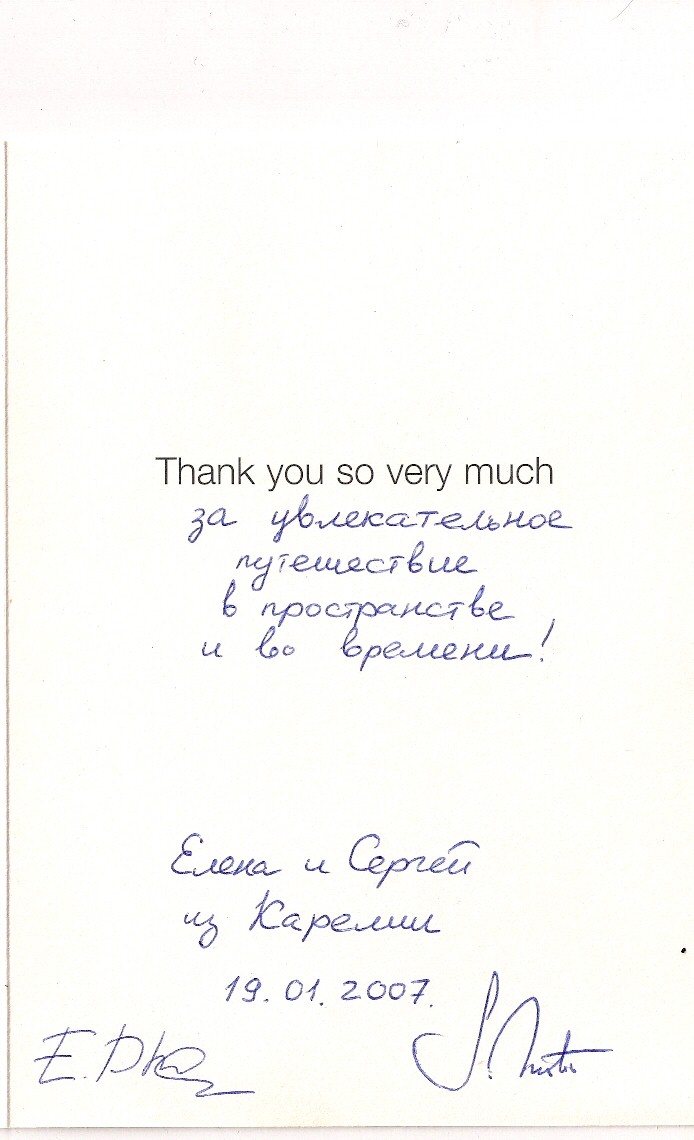 Thank you so very much
за увлекательное
путешествие
в пространстве
и во времени!
Елена и Сергей
из Карелии
19.01.2007.